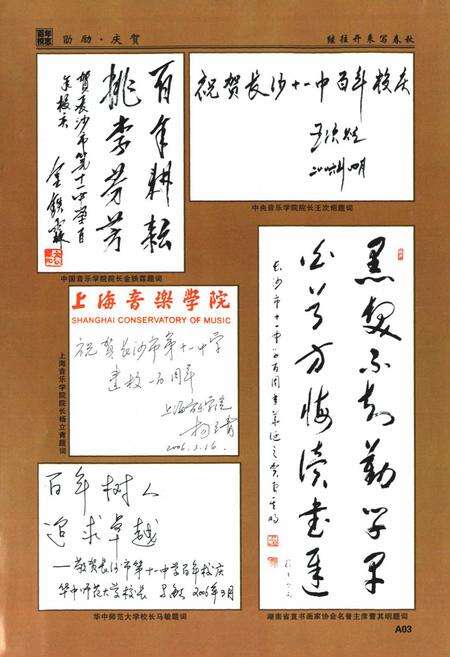 百年校志
勋励·庆贺
继往开来写春秋
百年耕耘
桃李芬芳
贺长沙市第十一中学百
年校庆
金铁霖
中国音乐学院院长金铁霖题词
祝贺长沙十一中百年校庆
王次炤
二〇〇六年四月
中央音乐学院院长王次炤题词
上海音樂學院
SHANGHAI CONSERVATORY OF MUSIC
祝贺长沙市第十一中学
建校一百周年
上海音乐学院
杨立青
2006.3.16.
上海音乐学院院长杨立青题词
百年树人
追求卓越
——敬贺长沙市第十一中学百年校庆
华中师范大学校长 马敏 2006年3月
华中师范大学校长马敏题词
黑发不知勤学早
白首方悔读书迟
湖南省直书画家协会名誉主席曹其明题词
A03